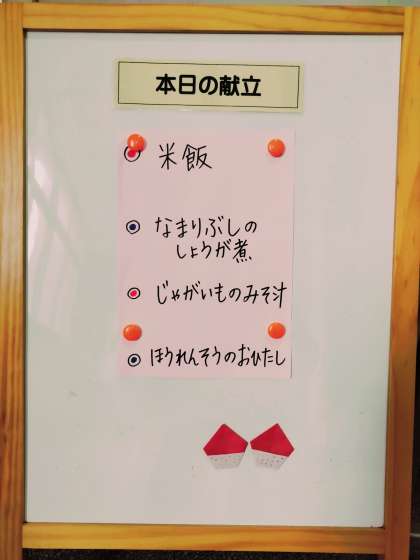 本日の献立
米飯
なまりぶしの
しょうが煮
じゃがいものみそ汁
ほうれんそうのおひたし